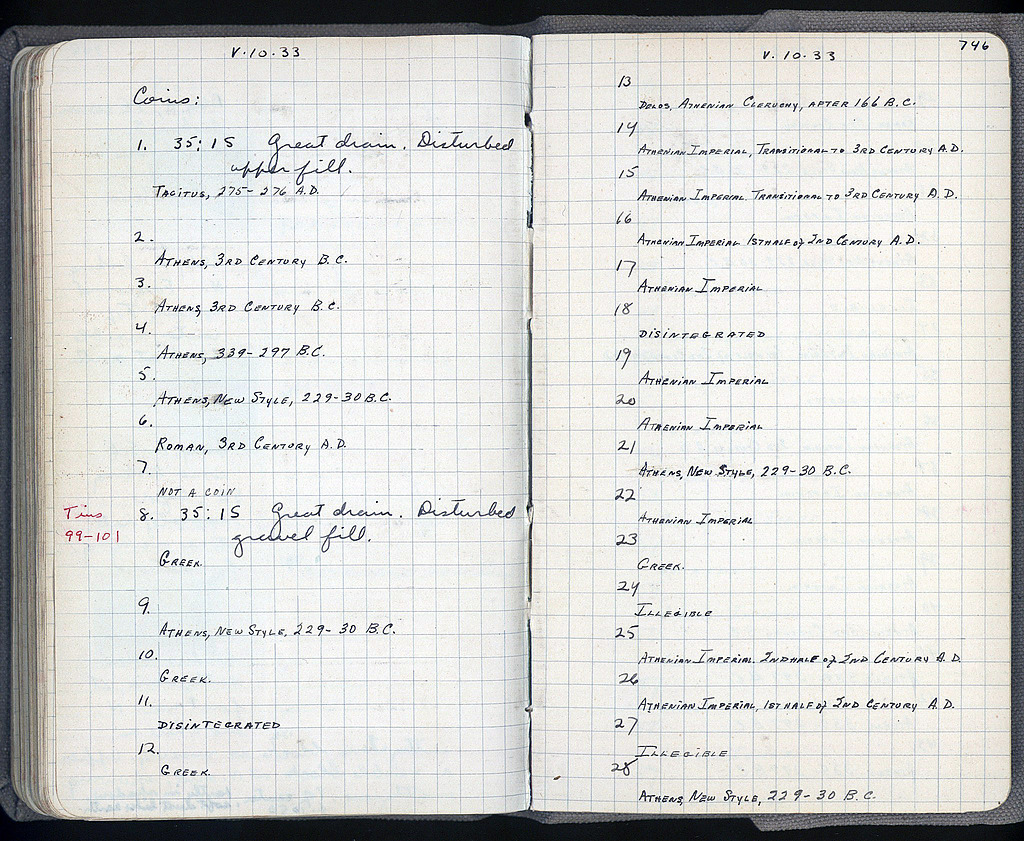 V·10·33
Coins:
1. 35:15 Great drain. Disturbed
upper fill.
TACITUS, 275-276 A.D.
2.
ATHENS, 3RD CENTURY B.C.
3.
ATHENS, 3RD CENTURY B.C.
4.
ATHENS, 339-297 B.C.
5.
ATHENS, NEW STYLE, 229-30 B.C.
6.
ROMAN, 3RD CENTURY A.D.
7.
NOT A COIN
Tins
99-101
8. 35:15 Great drain. Disturbed
gravel fill.
GREEK.
9.
ATHENS, NEW STYLE, 229-30 B.C.
10.
GREEK.
11.
DISINTEGRATED
12.
GREEK.
746
V. 10.33
13
DELOS, ATHENIAN CLERUCHY, AFTER 166 B.C.
14
ATHENIAN IMPERIAL, TRANSITIONAL TO 3RD CENTURY A.D.
15
ATHENIAN IMPERIAL. TRANSITIONAL TO 3RD CENTURY A.D.
16
ATHENIAN IMPERIAL 1ST HALF of 2ND CENTURY A.D.
17
ATHENIAN IMPERIAL
18
DISINTEGRATED
19
ATHENIAN IMPERIAL
20
ATHENIAN IMPERIAL
21
ATHENS, NEW STYLE, 229-30 B.C.
22
ATHENIAN IMPERIAL
23
GREEK.
24
ILLEGIBLE
25
ATHENIAN IMPERIAL. 2ND HALF of 2ND CENTURY A.D.
26
ATHENIAN IMPERIAL, 1ST HALF of 2ND CENTURY A.D.
27
ILLEGIBLE
28
ATHENS, NEW STYLE, 229-30 B.C.